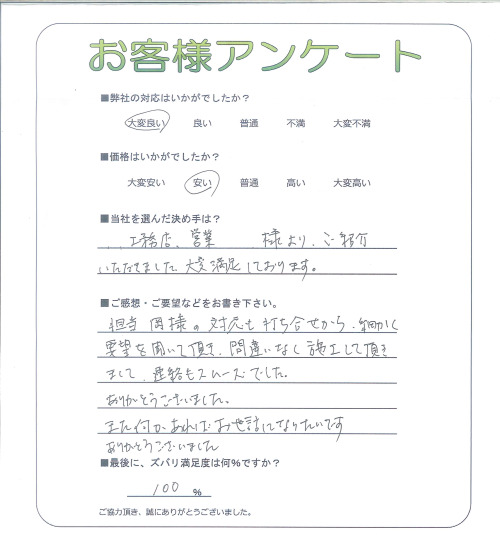 お客様アンケート
■弊社の対応はいかがでしたか?
大変良い 良い 普通 不満 大変不満
■価格はいかがでしたか?
大変安い 安い 普通 高い 大変高い
■当社を選んだ決め手は?
工務店、営業 様より、ご紹介
いただきました。大変満足しております。
■ご感想・ご要望などをお書き下さい。
担当 岡様の対応も打ち合せから、細かく
要望を聞いて頂き、間違いなく施工して頂き
まして、連絡もスムーズでした。
ありがとうございました。
また何かあればお世話になりたいです
ありがとうございました
■最後に、ズバリ満足度は何%ですか?
100 %
ご協力頂き、誠にありがとうございました。